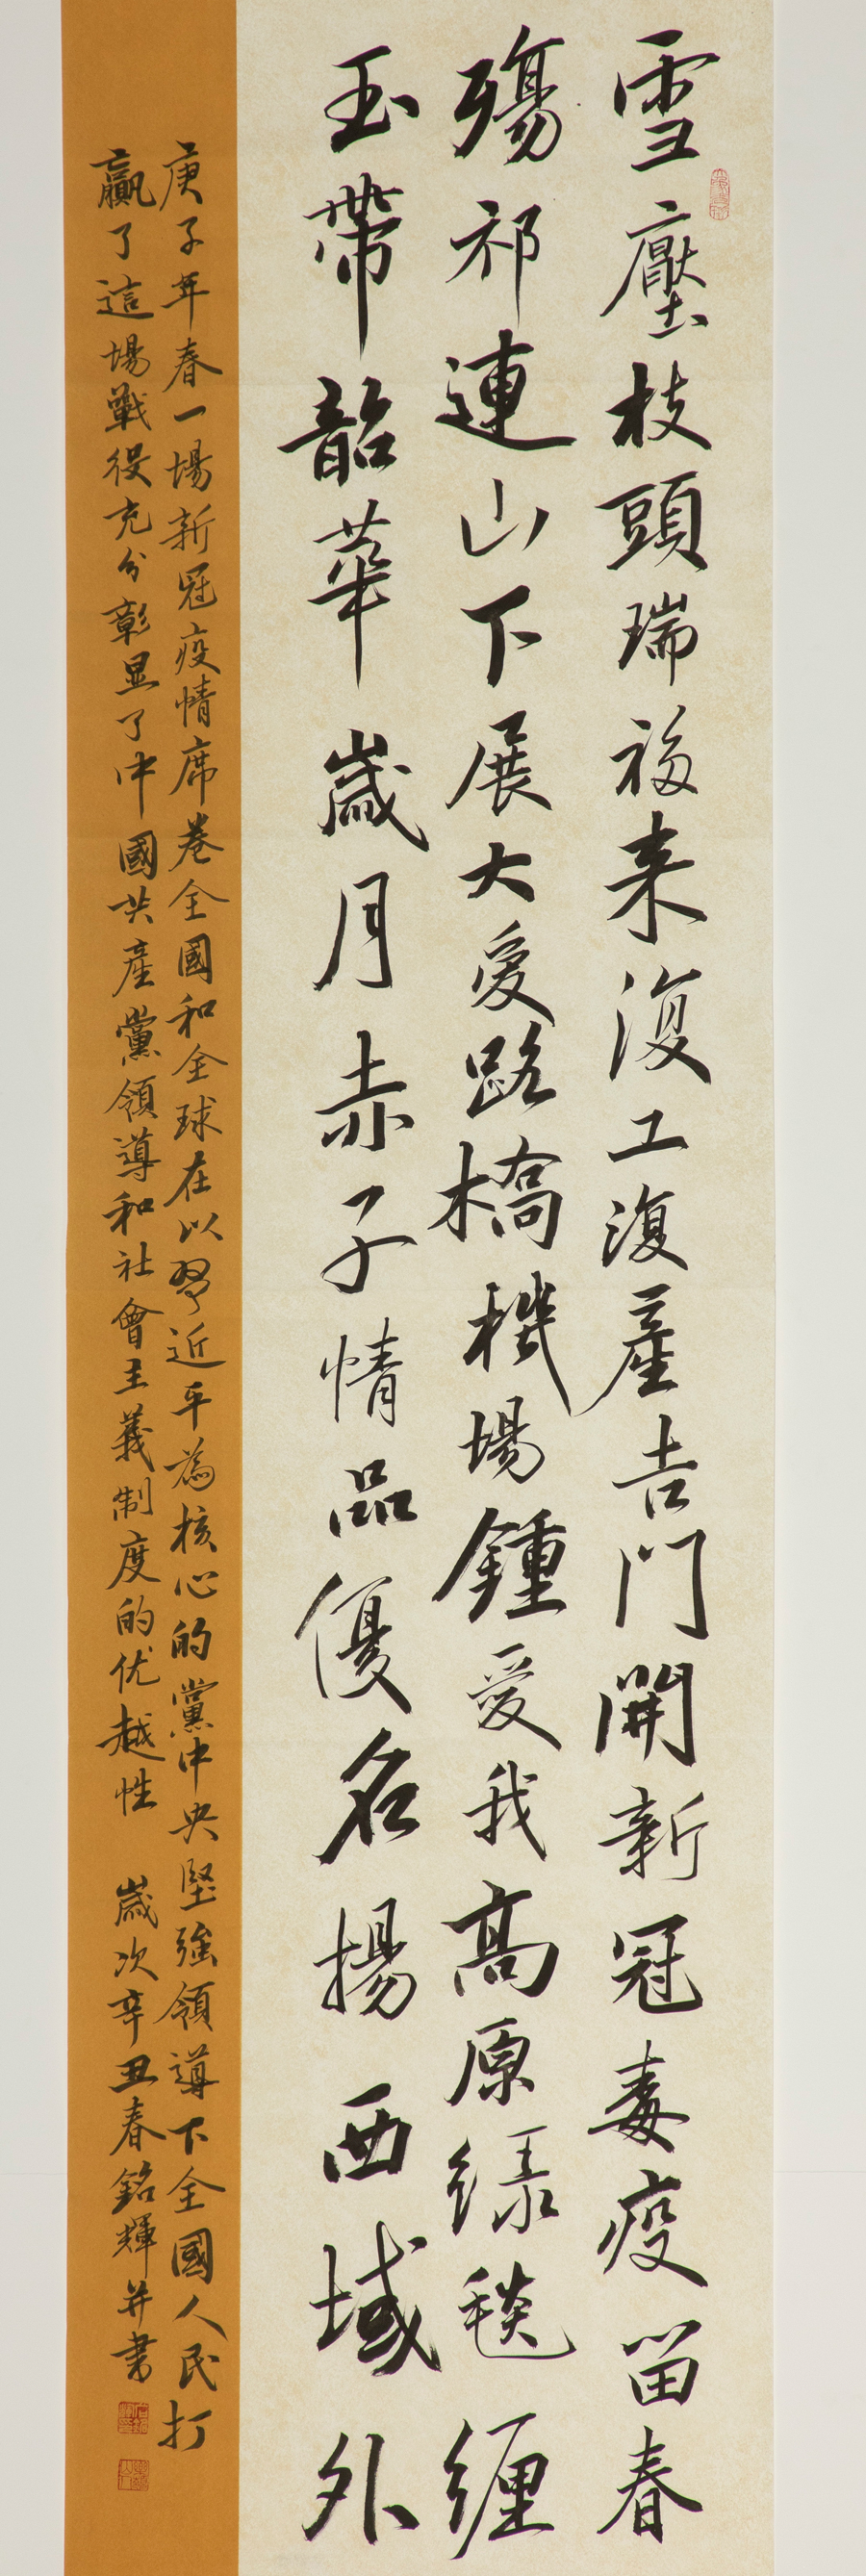 雪壓枝頭瑞福来復工復產吉門開新冠毒疫留春
殤祁連山下展大愛路橋機場鍾愛我高原绿毯缠
玉帶韶華歲月赤子情品優名揚西域外
庚子年春一場新冠疫情席卷全國和全球在以習近平為核心的黨中央堅強領導下全國人民打
贏了這場戰役充分彰显了中國共產黨領導和社會主義制度的优越性 歲次辛丑春銘輝并書